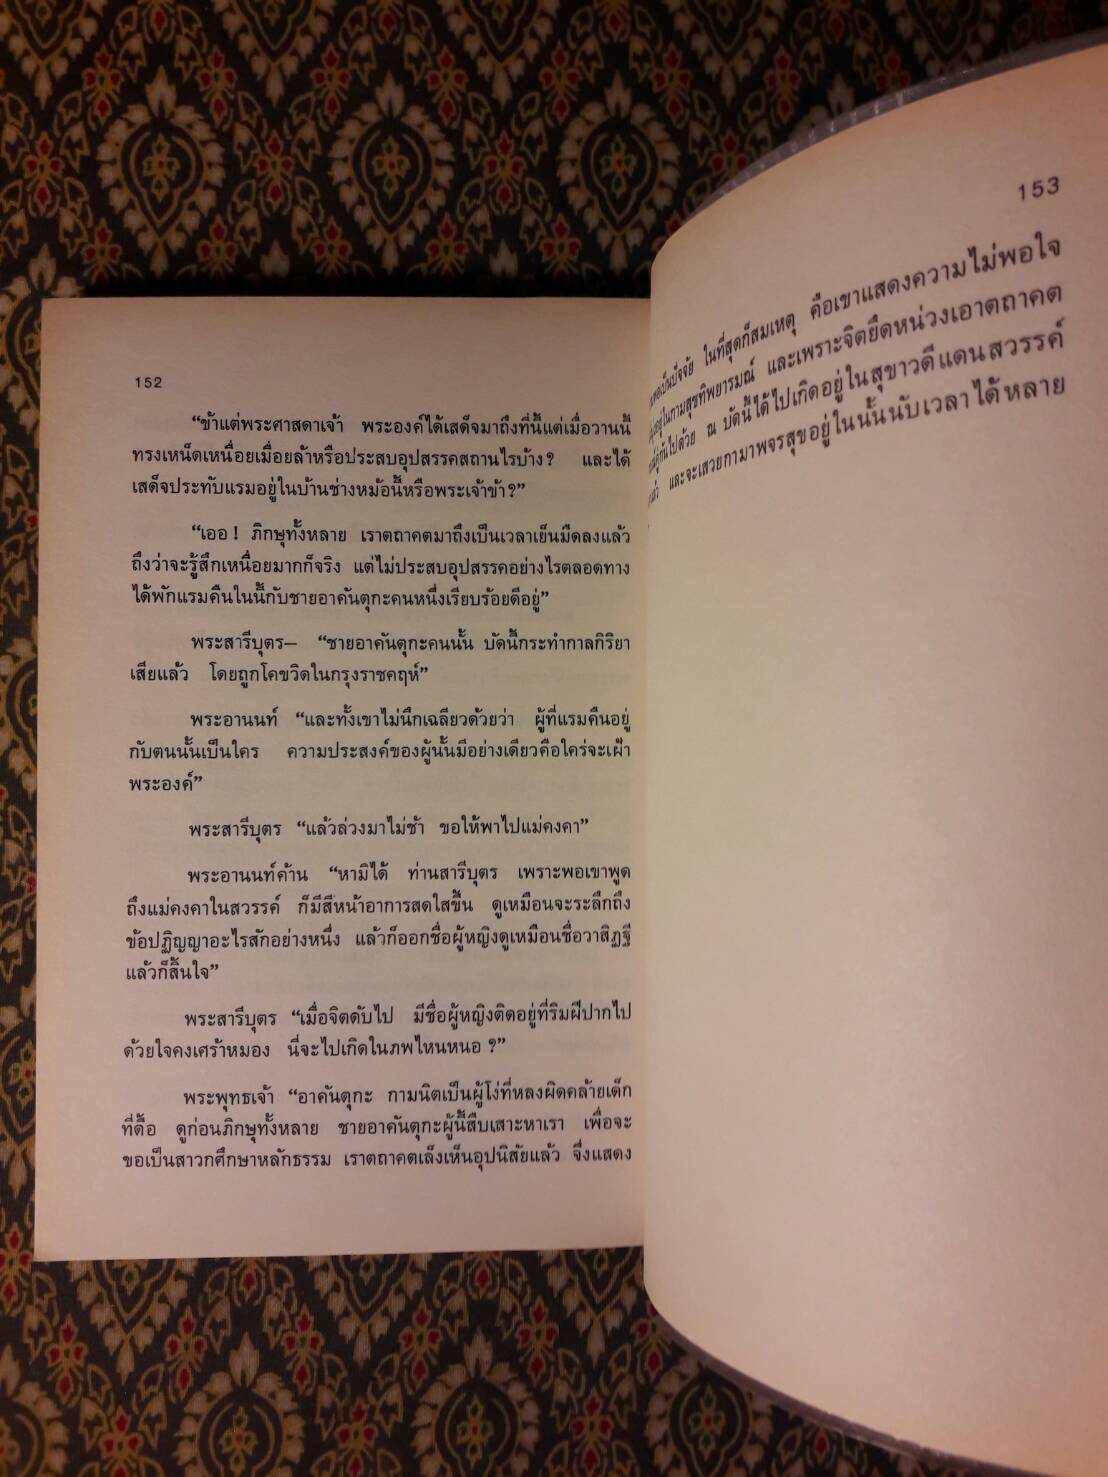 152
“ข้าแต่พระศาสดาเจ้า พระองค์ได้เสด็จมาถึงที่นี้แต่เมื่อวานนี้
ทรงเหน็ดเหนื่อยเมื่อยล้าหรือประสบอุปสรรคสถานไรบ้าง? และได้
เสด็จประทับแรมอยู่ในบ้านช่างหม้อนี้หรือพระเจ้าข้า?”
“เออ! ภิกษุทั้งหลาย เราตถาคตมาถึงเป็นเวลาเย็นมืดลงแล้ว
ถึงว่าจะรู้สึกเหนื่อยมากก็จริง แต่ไม่ประสบอุปสรรคอย่างไรตลอดทาง
ได้พักแรมคืนในนี้กับชายอาคันตุกะคนหนึ่งเรียบร้อยดีอยู่”
พระสารีบุตร— “ชายอาคันตุกะคนนั้น บัดนี้กระทำกาลกิริยา
เสียแล้ว โดยถูกโคขวิดในกรุงราชคฤห์”
พระอานนท์ “และทั้งเขาไม่นึกเฉลียวด้วยว่า ผู้ที่แรมคืนอยู่
กับตนนั้นเป็นใคร ความประสงค์ของผู้นั้นมีอย่างเดียวคือใคร่จะเฝ้า
พระองค์”
พระสารีบุตร “แล้วล่วงมาไม่ช้า ขอให้พาไปแม่คงคา”
พระอานนท์ค้าน “หามิได้ ท่านสารีบุตร เพราะพอเขาพูด
ถึงแม่คงคาในสวรรค์ ก็มีสีหน้าอาการสดใสขึ้น ดูเหมือนจะระลึกถึง
ข้อปฏิญญาอะไรสักอย่างหนึ่ง แล้วก็ออกชื่อผู้หญิงดูเหมือนชื่อวาสิฏฐี
แล้วก็สิ้นใจ”
พระสารีบุตร “เมื่อจิตดับไป มีชื่อผู้หญิงติดอยู่ที่ริมฝีปากไป
ด้วยใจคงเศร้าหมอง นี่จะไปเกิดในภพไหนหนอ?”
พระพุทธเจ้า “อาคันตุกะ กามนิตเป็นผู้โง่ที่หลงผิดคล้ายเด็ก
ที่ดื้อ ดูก่อนภิกษุทั้งหลาย ชายอาคันตุกะผู้นี้สืบเสาะหาเรา เพื่อจะ
ขอเป็นสาวกศึกษาหลักธรรม เราตถาคตเล็งเห็นอุปนิสัยแล้ว จึ่งแสดง
153
เป็นปัจจัย ในที่สุดก็สมเหตุ คือเขาแสดงความไม่พอใจ
อยู่ในกามสุขทิพยารมณ์ และเพราะจิตยึดหน่วงเอาตถาคต
ไปด้วย ณ บัดนี้ได้ไปเกิดอยู่ในสุขาวดีแดนสวรรค์
และจะเสวยกามาพจรสุขอยู่ในนั้นนับเวลาได้หลาย